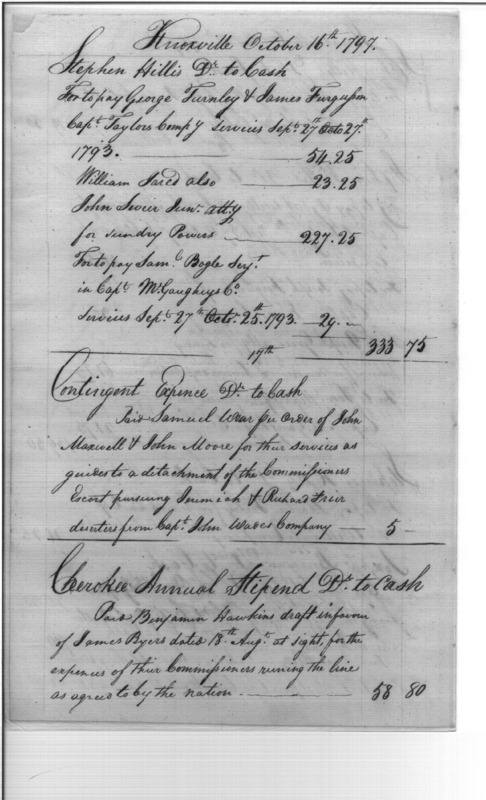 Knoxville October 16th 1797.
Stephen Hillis Dr to Cash
For to pay George Turnley & James Ferguson
Capt Taylors Compy Services Sept 27th Octo 27th
1793. 54.25
William Jared also 23.25
John Sevier Junr atty
for sundry Powers 227.25
For to pay Saml Bogle Serjt
in Capt McGaugheys Co
Services Sept 27th Octr 25th 1793 29. –
333 75
17th
Contingent Expence Dr to Cash
Paid Samuel Wear per order of John
Maxwell & John Moore for their services as
guides to a detachment of the Commissioners
Escort pursuing Jeremiah & Richard
deserters from Capt John Wades Company 5 –
Cherokee Annual Stipend Dr to Cash
Paid Benjamin Hawkins draft in favour
of James Byers dated 18th Augt at sight for the
expences of their Commissioners runing the line
as agreed to by the nation 58 80